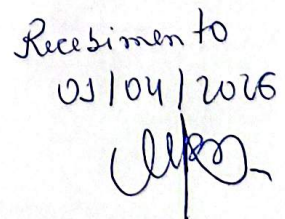 Recebimento
01/04/2026